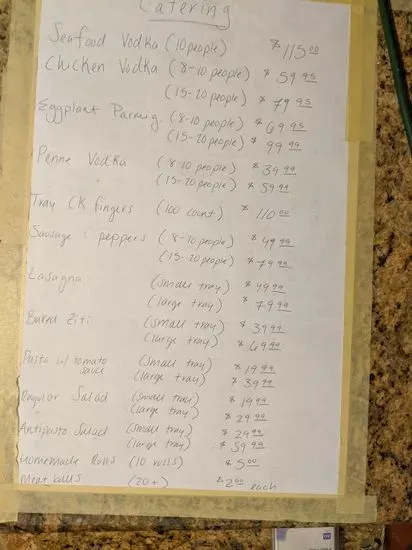 Catering
Seafood Vodka (10 people) $115.00
Chicken Vodka (8-10 people) $59.95
(15-20 people) $79.95
Eggplant Parmig. (8-10 people) $69.95
(15-20 people) $99.99
Penne Vodka (8-10 people) $39.99
(15-20 people) $59.99
Tray CK fingers (100 count) $110.00
Sausage & peppers (8-10 people) $49.99
(15-20 people) $79.95
Lasagna (small tray) $49.99
(large tray) $79.99
Baked Ziti (small tray) $39.99
(large tray) $69.99
Pasta w/ tomato sauce (small tray) $19.99
(large tray) $39.99
Regular Salad (small tray) $19.99
(large tray) $29.99
Antipasto Salad (small tray) $29.99
(large tray) $59.99
Homemade Rolls (10 rolls) $5.00
Meat balls (20+) $2.00 each